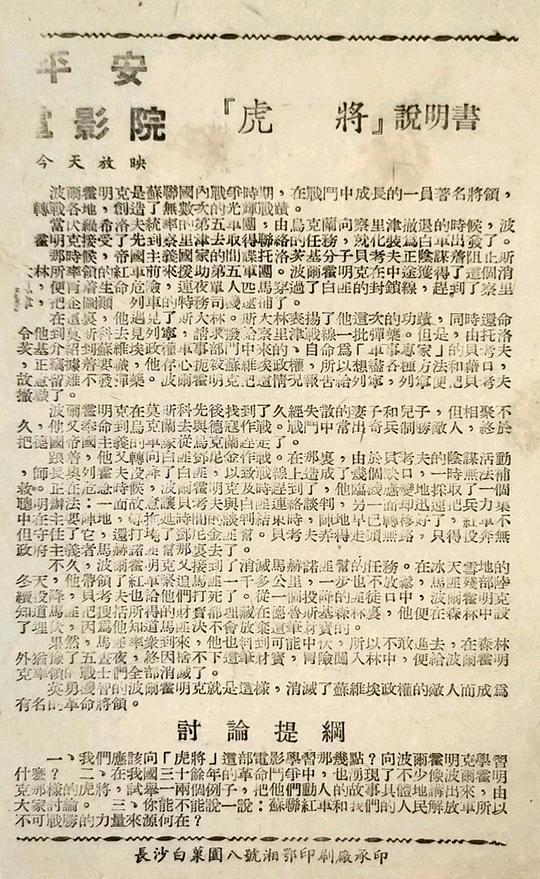 平安
電影院
今天放映
『虎 將』說明書
波爾霍明克是蘇聯國內戰爭時期，在戰鬥中成長的一員著名將領，
轉戰各地，創造了無數次的光輝戰績。
當伏希洛夫統率第五軍團，由烏克蘭向察里津撤退的時候，波
霍明克接受了先到察津去取得聯絡的任務，就化裝為白軍出發了。
那時候，帝紅主義第間諜托洛茨基分子貝考夫正陰謀着阻止斯
林所率領的
便冒着生命危險，運四馬穿過了白匪的封鎖線，趕到了察里
把企圖顛 列車的特務司 逮捕了。
在這裏，他遇見了斯大林。斯大林表揚了他這次的功績，同時還命
令他到莫斯科去見列寧，請求發給察里津戰線一批彈藥。但是，由托洛
茨基介紹到蘇維埃軍事部門來的、自命為「軍事專家」的貝考夫
正竊據着 政權，他存心扼殺蘇維埃政權，所以想盡各種方法和藉口
故意留難不發彈藥。波爾霍明克把這情況報告給列寧，列寧便把貝考夫
撤職了。
波爾霍明克在莫斯科先後找到了久經失散的妻子和兒子，但相聚不
久，他又奉命去烏克蘭作戰。戰鬥中常出奇兵制勝敵人，終於
把德帝國主義軍隊從烏克蘭趕走了。
跟着，他又轉向白匪鄧尼金作戰。在那裏，由於貝考夫的陰謀活動
，師長與列寧夫沒 以致戰線上造成了幾個缺口，一時無法補
救。正在危急時候，波爾霍明克及時趕到了，他臨機應變地採取了一個
聰明辦法：一面故意讓貝考夫與白匪進行談判，另一面却迅速把兵力集
中在主要陣地，等拖延時間的談判結束時，陣地早已轉移好了，紅軍不
但守住了它，還打垮了鄧尼金匪幫。貝考夫弄得走頭無路，只得投奔無
政府主義者馬赫諾匪幫那裏去了。
不久，波爾霍明克又接到了消滅馬赫諾匪幫的任務。在冰天雪地的
冬天，他帶領了紅軍追馬匪一千多公里，一步也不放鬆，馬匪殘部陸
續投降，貝考夫也給他們打死了。從一個投降的匪徒口中，波爾霍明克
知道馬匪把搜括所得的財寶都埋藏在德普斯基森林裏，他便在森林中設
了埋伏，因為他知道馬匪決不會放棄這筆財寶的。
果然，馬匪率衆到來，他也料到可能中伏，所以不敢進去，在森林
外猶豫了五晝夜，終因捨不下這筆財寶，冒險闖入林中，便給波爾霍明
克率領的戰士們全部消滅了。
英勇機智的波爾霍明克就是這樣，消滅了蘇維埃政權的敵人而成為
有名的革命將領。
討論提綱
一、我們應該向「虎將」這部電影學習那幾點？向波爾霍明克學習
什麽？ 二、在我國三十餘年的革命鬥爭中，也湧現了不少像波爾霍明
克那樣的虎將，試舉一兩個例子，把他們動人的故事具體地講出來，由
大家討論。 三、你能不能說一說：蘇聯紅軍和我們的人民解放軍所以
不可戰勝的力量來源何在？
長沙白菓園八號湘鄂印刷廠承印